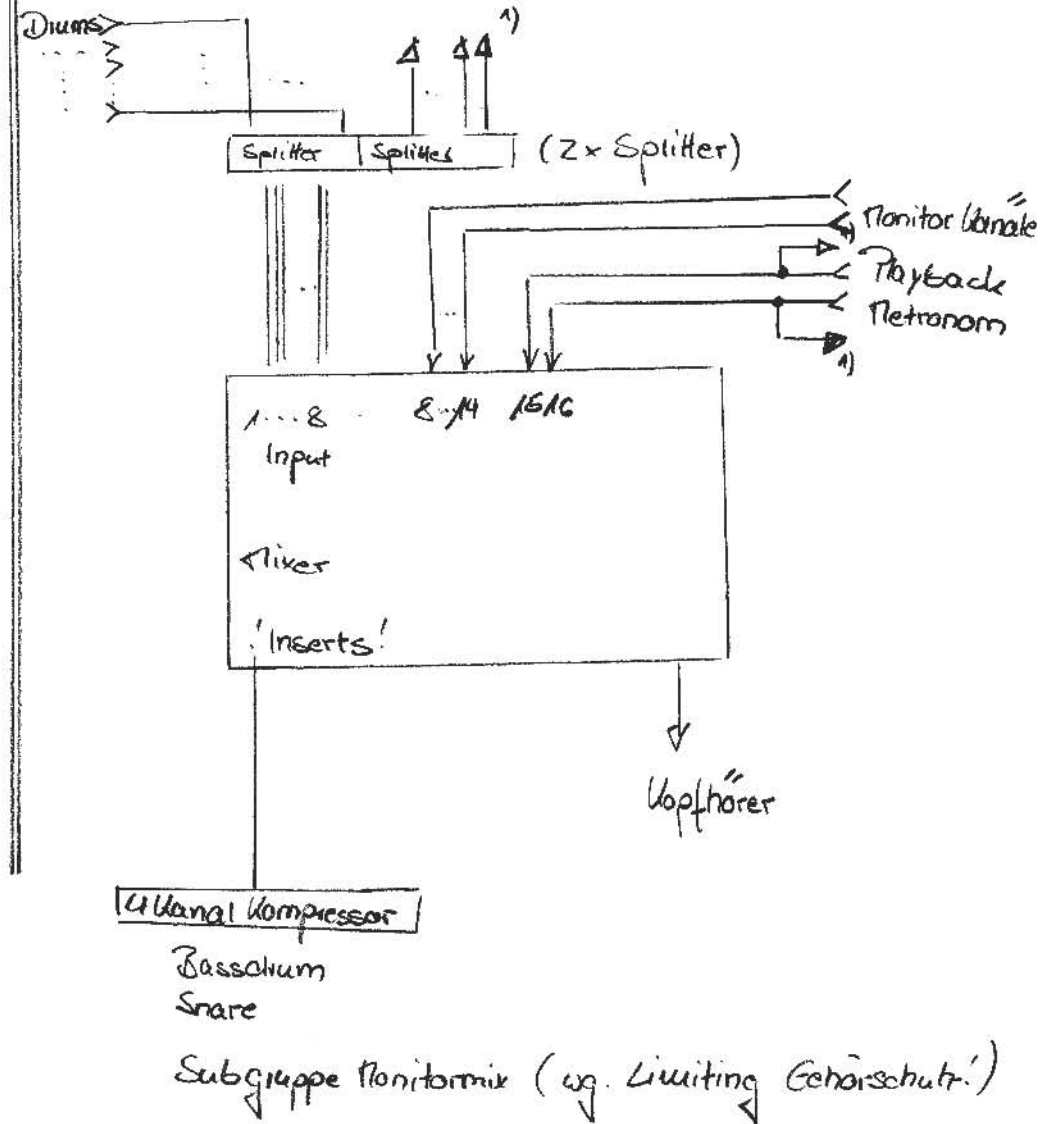 Drums
1)
Splitter Splitter (2x Splitter)
Monitor Kanäle
1)
Playback
Metronom
1)
1....8 8..14 15 16
Input
Mixer
! Inserts !
Kopfhörer
4 Kanal Kompressor
Bassdrum
Snare
Subgruppe Monitormix (wg. Limiting Gehörschutz!)